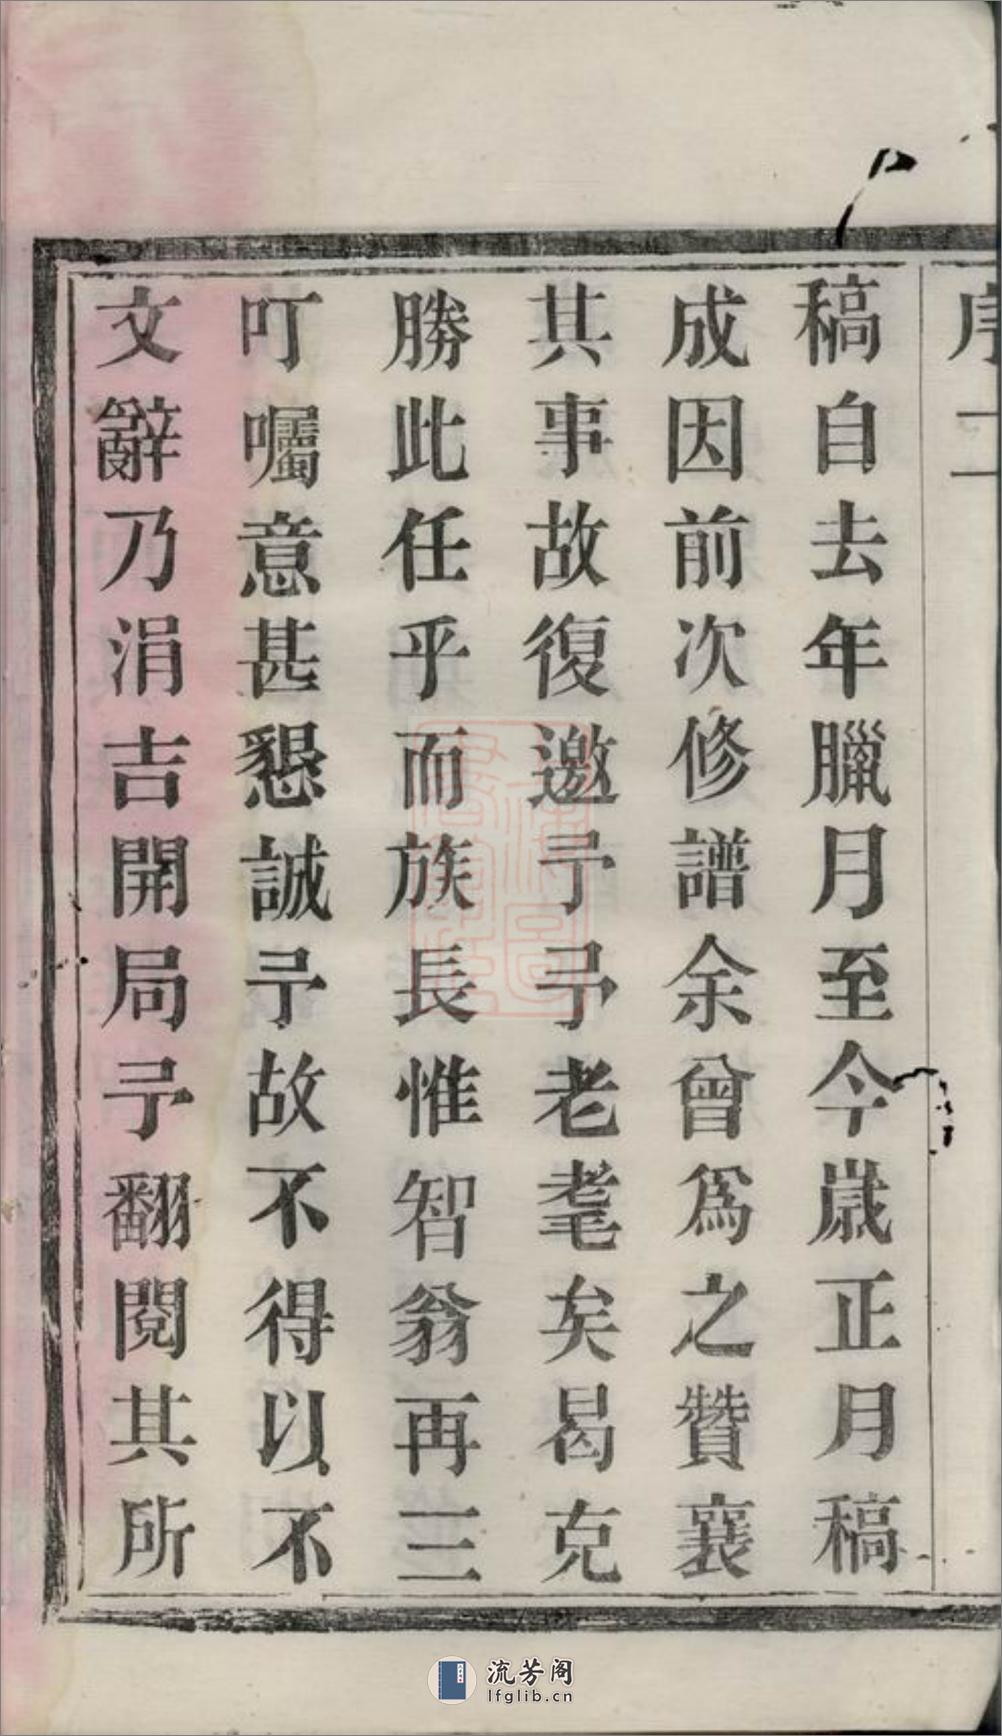 序二
稿自去年臘月至今歲正月稿
成因前次修譜余曾爲之贊襄
其事故復邀予予老耄矣曷克
勝此任乎而族長惟智翁再三
叮囑意甚懇誠予故不得以不
文辭乃涓吉開局予翻閱其所
流芳阁
lfglib.cn